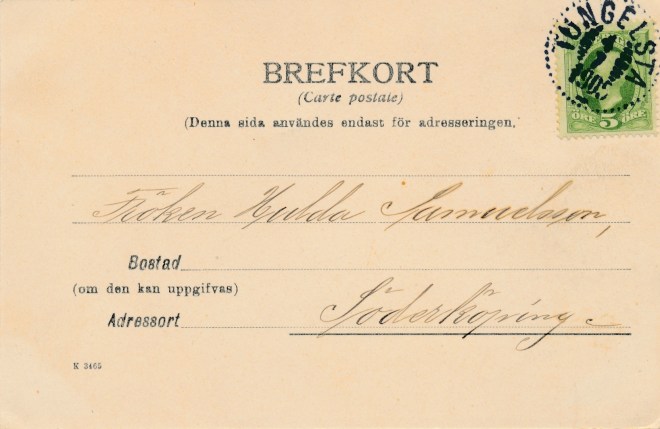 TUNGELSTA
BREFKORT
(Carte postale)
(Denna sida användes endast för adresseringen.
ÖRE 5 ÖRE
Fröken Hulda Samuelsson,
Bostad
(om den kan uppgifvas)
Söderköping
Adressort
K 3465